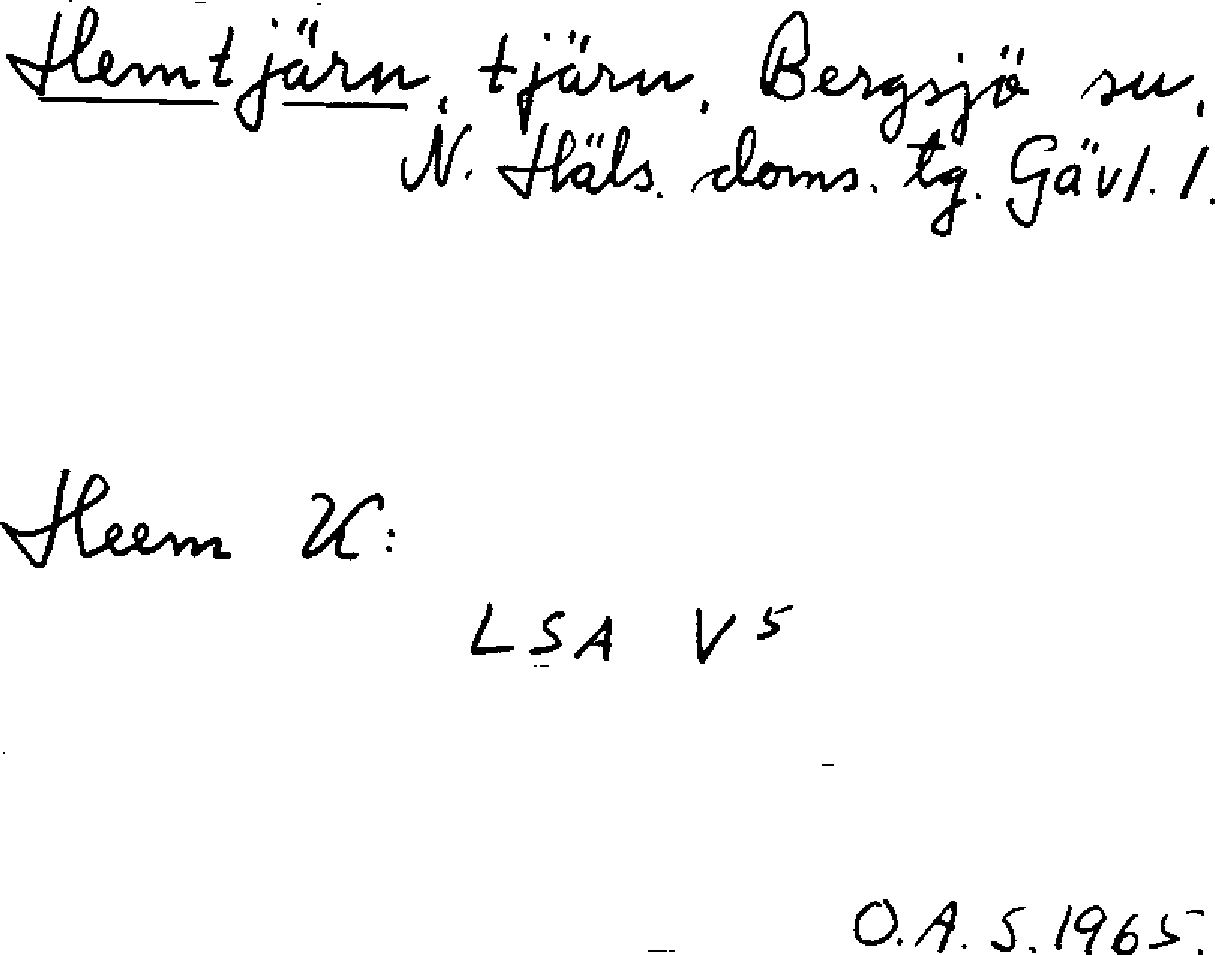 Hemtjärn, tjärn, Bergsjö sn,
N. Häls. doms. tg. Gävl. l.
Heem K:
LSA V5
O.A.S. 1965.